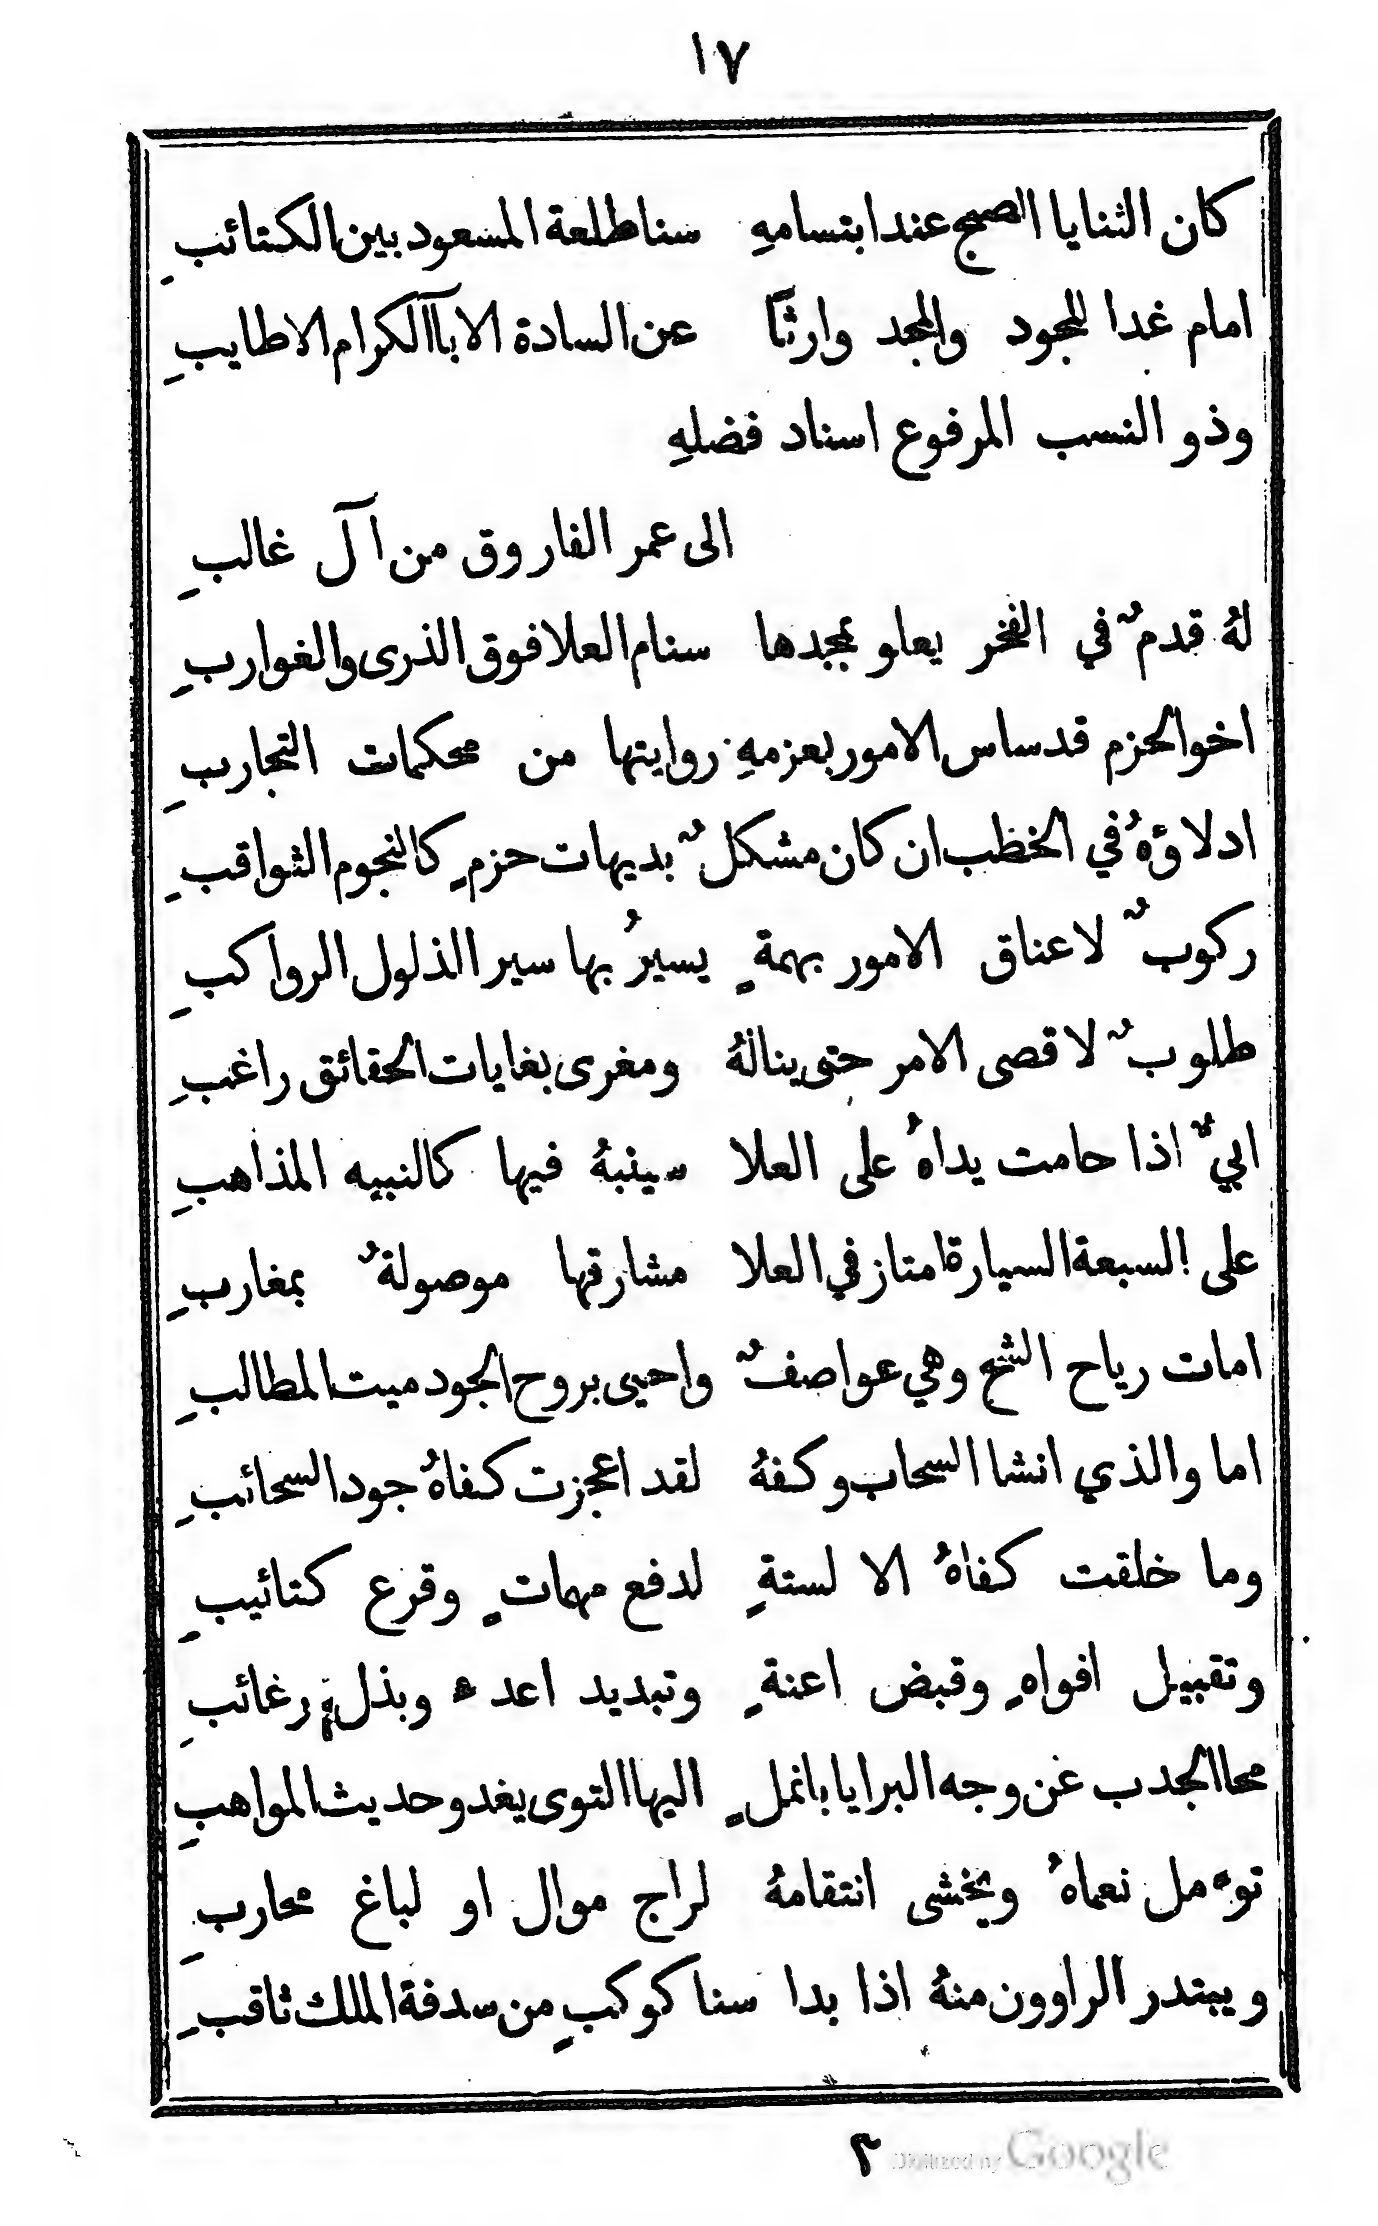 ١٧
كان الثنايا الصبح عند ابتسامهِ سنا طلعة المسعود بين الكتائبِ
امام غدا للجود والمجد وارثًا عن السادة الابآ الكرام الاطايبِ
وذو النسب المرفوع اسناد فضلهِ
الى عمر الفاروق من آل غالبِ
لهُ قدمٌ في الفخر يعلو بمجدها سنام العلا فوق الذرى والغواربِ
اخو الحزم قد ساس الامور بعزمهِ روايتها من محكمات التجاربِ
ادلاؤهُ في الخطب ان كان مشكلٌ بديهات حزمٍ كالنجوم الثواقبِ
ركوبٌ لاعناق الامور بهمةٍ يسيرُ بها سير الذلول الرواكبِ
طلوبٌ لاقصى الامر حتى ينالهُ ومغرى بغايات الحقائق راغبِ
ابيٌ اذا حامت يداهُ على العلا سينبهُ فيها كالنبيه المذاهبِ
على السبعة السيارة امتاز في العلا مشارقها موصولةٌ بمغاربِ
امات رياح الشح وهي عواصفٌ واحيى بروح الجود ميت المطالبِ
اما والذي انشا السحاب وكفهُ لقد اعجزت كفاهُ جود السحائبِ
وما خلقت كفاهُ الا لستةٍ لدفع مهماتٍ وقرع كتائيبِ
وتقبيل افواهٍ وقبض اعنةٍ وتبديد اعدء وبذل رغائبِ
محا الجدب عن وجه البرايا بانملٍ اليها التوى يغدو حديث المواهبِ
توءمل نعماهُ ويخشى انتقامهُ لراج موال او لباغ محاربِ
ويبتدر الراوون منهُ اذا بدا سنا كوكبٍ من سدفة الملك ثاقبِ
٣ Digitized by Google